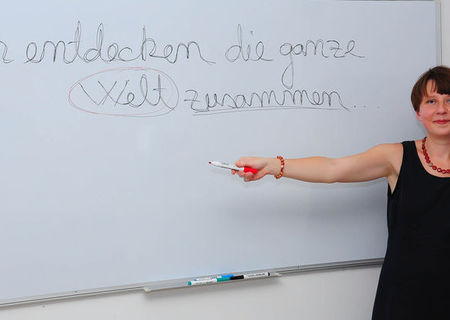 entdecken die ganze
Welt zusammen...